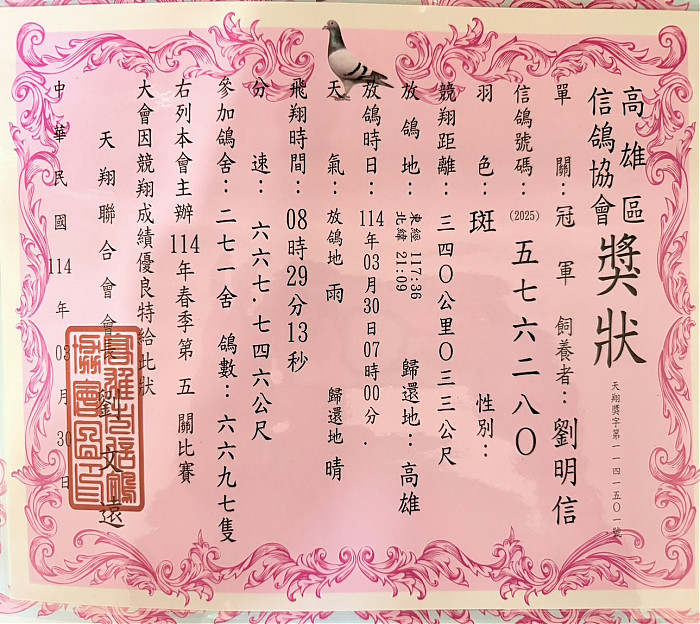 高雄區
信鴿協會
獎狀
天翔獎字第一一四一五〇一號
單關：冠軍 飼養者：劉明信
信鴿號碼：(2025) 五七六二八〇
羽色：斑 性別：
競翔距離：三四〇公里〇三三公尺
放鴿地：東經 117:36 北緯 21:09 歸還地：高雄
放鴿時日：114年03月30日07時00分.
天氣：放鴿地 雨 歸還地 晴
飛翔時間：08時29分13秒
分速：六六七.七四六公尺
參加鴿舍：二七一舍 鴿數：六六九七隻
右列本會主辦114年春季第五關比賽
大會因競翔成績優良特給此狀
天翔聯合會會長 劉文遠
中華民國114年03月30日